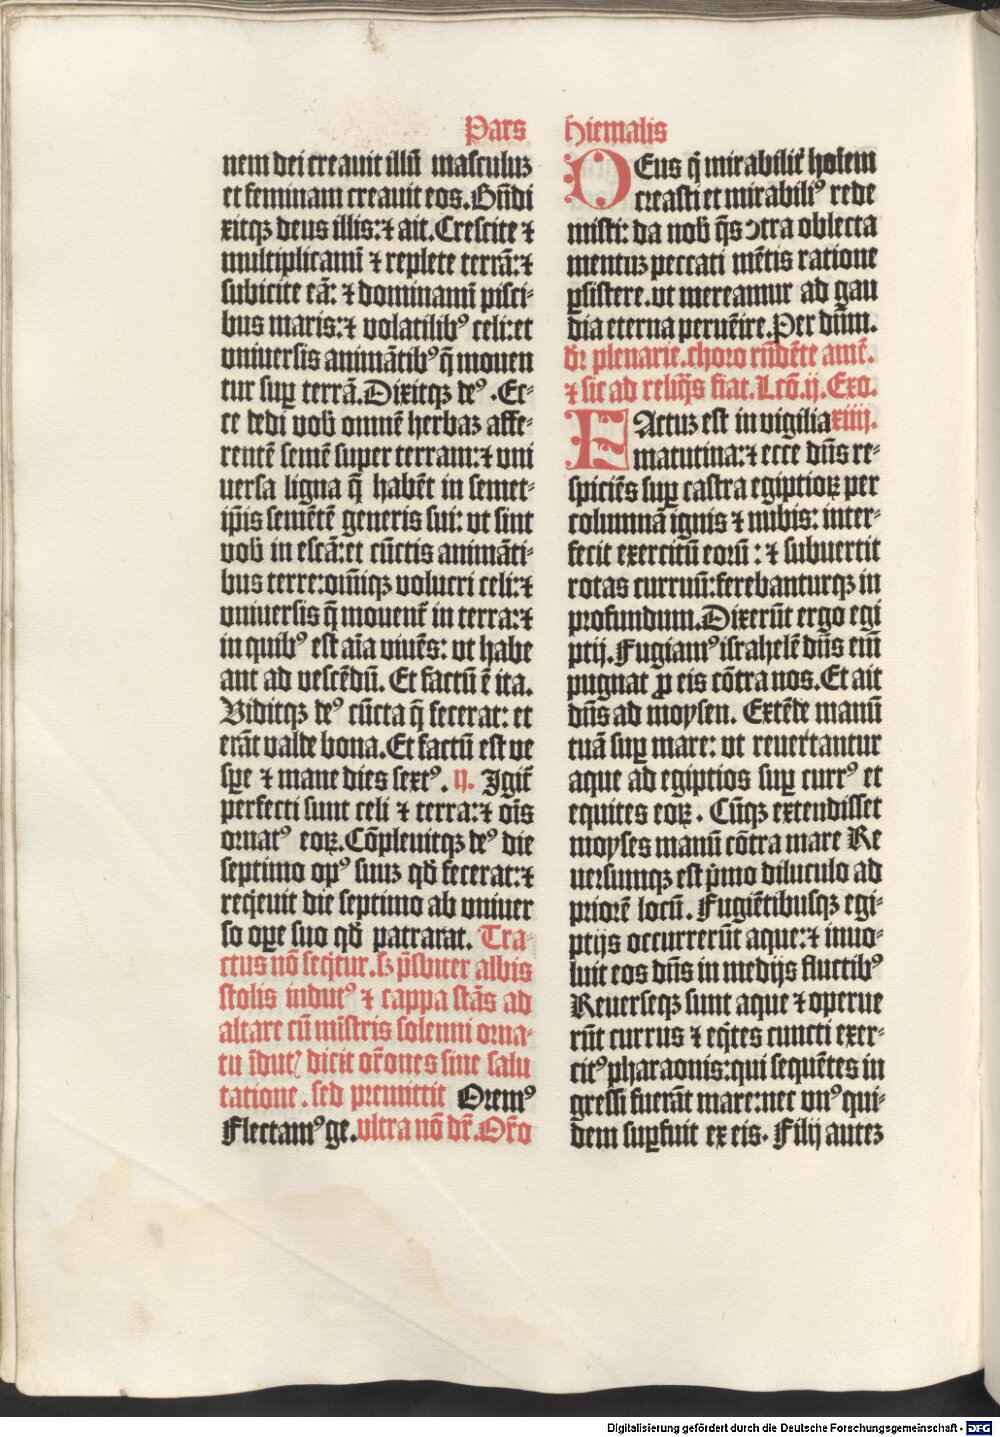 Pars hiemalis
nem dei creauit illũ masculuꝫ
et feminam creauit eos. Bñdi
xitqꝫ deus illis: ⁊ ait. Crescite ⁊
multiplicamĩ ⁊ replete terrã: ⁊
subicite eã: ⁊ dominamĩ pisci⸗
bus maris: ⁊ volatilibꝰ celi: et
vniuersis animãtibꝰ q̃ mouen
tur suꝑ terrã. Dixitqꝫ deꝰ. Ec⸗
ce dedi vob̃ omnẽ herbaꝫ affe⸗
rentẽ semẽ super terram: ⁊ vni
uersa ligna q̃ habẽt in semet⸗
ip̃is semẽtẽ generis sui: vt sint
vob̃ in escã: et cũctis animãti⸗
bus terre: om̃iqꝫ volucri celi: ⁊
vniuersis q̃ mouent᷑ in terra: ⁊
in quibꝰ est aĩa viuẽs: vt habe
ant ad vescẽdũ. Et factũ ẽ ita.
Viditqꝫ deꝰ cũcta q̃ fecerat: et
erãt valde bona. Et factũ est ve
sꝑe ⁊ mane dies sextꝰ. ij. Igit᷑
perfecti sunt celi ⁊ terra: ⁊ oĩs
ornatꝰ eoꝝ. Cõpleuitqꝫ deꝰ die
septimo opꝰ suuꝫ qð fecerat: ⁊
req̃euit die septimo ab vniuer
so oꝑe suo qð patrarat. Tra⸗
ctus nõ seq̃tur. sꝫ p̃sbiter albis
stolis indutꝰ ⁊ cappa stãs ad
altare cũ mĩstris solenni orna⸗
tu ĩdut᷑ dicit or̃ones sine salu
tatione. sed premittit Oremꝰ
Flectamꝰ ge. vltra nõ dr̃. Or̃o
DEus q̃ mirabilit᷑ hoĩem
creasti et mirabiliꝰ rede
misti: da nob̃ q̃s ↄtra oblecta
mentuꝫ peccati mẽtis ratione
ꝑsistere. vt mereamur ad gau
dia eterna peruẽire. Per dñm.
đr plenarie. choro rñdẽte amẽ.
⁊ sic ad reliq̃s fiat. Lcõ. ij. Exo.
FActuꝫ est in vigilia xiiij.
matutina: ⁊ ecce dñs re⸗
spiciẽs suꝑ castra egiptioꝝ per
columnã ignis ⁊ nubis: inter⸗
fecit exercitũ eorũ: ⁊ subuertit
rotas curruũ: ferebanturqꝫ in
profundum. Dixerũt ergo egi
ptij. Fugiamꝰ israhelẽ dñs eĩm
pugnat ꝓ eis cõtra nos. Et ait
dñs ad moysen. Extẽde manũ
tuã suꝑ mare: vt reuertantur
aque ad egiptios suꝑ currꝰ et
equites eoꝝ. Cũqꝫ extendisset
moyses manũ cõtra mare Re
uersumqꝫ est p̃mo diluculo ad
priorẽ locũ. Fugiẽtibusqꝫ egi⸗
ptijs occurrerũt aque: ⁊ inuo⸗
luit eos dñs in medijs fluctibꝰ
Reuerseqꝫ sunt aque ⁊ operue
rũt currus ⁊ eq̃tes cuncti exer⸗
citꝰ pharaonis: qui sequẽtes in
gressi fuerãt mare: nec vnꝰ qui⸗
dem suꝑfuit ex eis. Filij auteꝫ
Digitalisierung gefördert durch die Deutsche Forschungsgemeinschaft - DFG